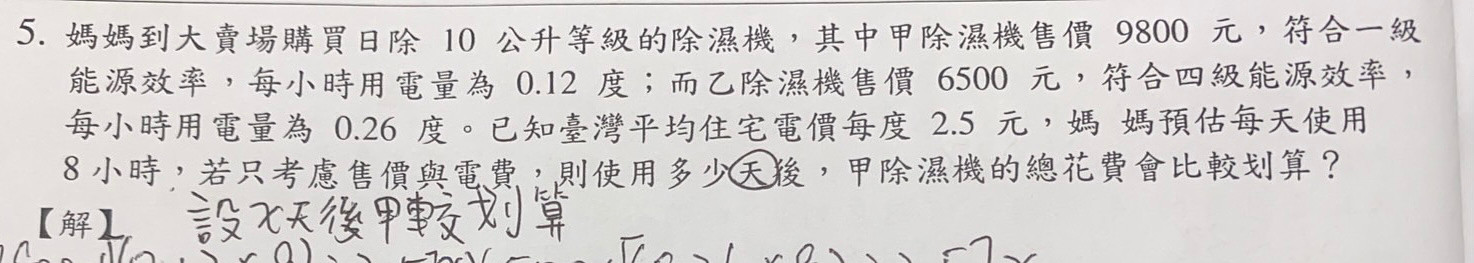 5. 媽媽到大賣場購買日除 10 公升等級的除濕機，其中甲除濕機售價 9800 元，符合一級
能源效率，每小時用電量為 0.12 度；而乙除濕機售價 6500 元，符合四級能源效率，
每小時用電量為 0.26 度。已知臺灣平均住宅電價每度 2.5 元，媽 媽預估每天使用
8 小時，若只考慮售價與電費，則使用多少天後，甲除濕機的總花費會比較划算？
【解】 設x天後甲較划算